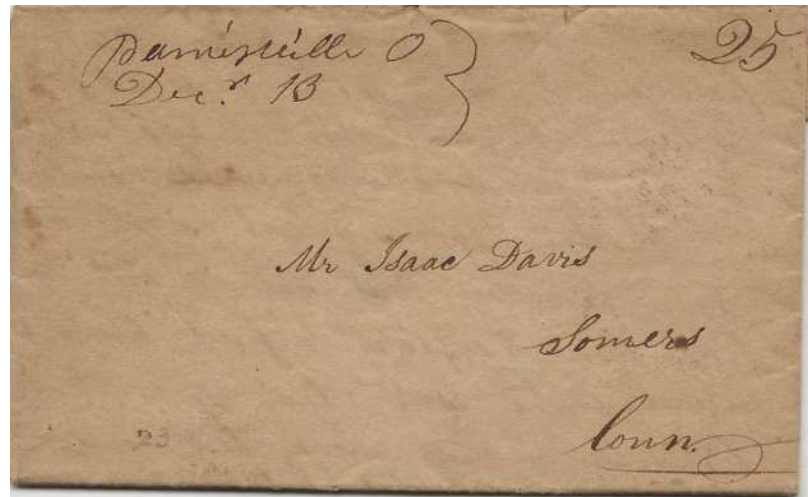 Painesville O
Decr. 13
25
Mr Isaac Davis
Somers
Conn.
23